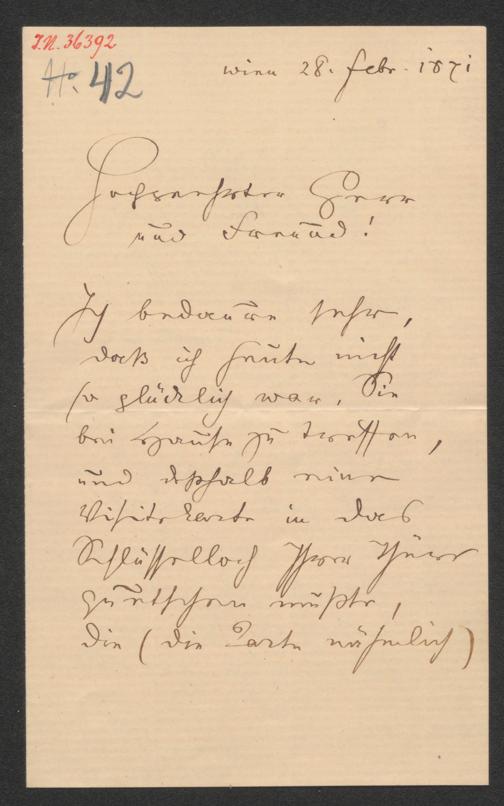 I.N. 36392
No. 42
Wien 28. Febr. 1871
Hochgeehrter Herr
und Freund!
Ich bedaure sehr,
daß ich heute nicht
so glücklich war, Sie
bei Hause zu treffen,
und deßhalb eine
Visitekarte in das
Schlüsselloch Ihrer Thüre
quetschen mußte,
die (die Karte nähmlich)